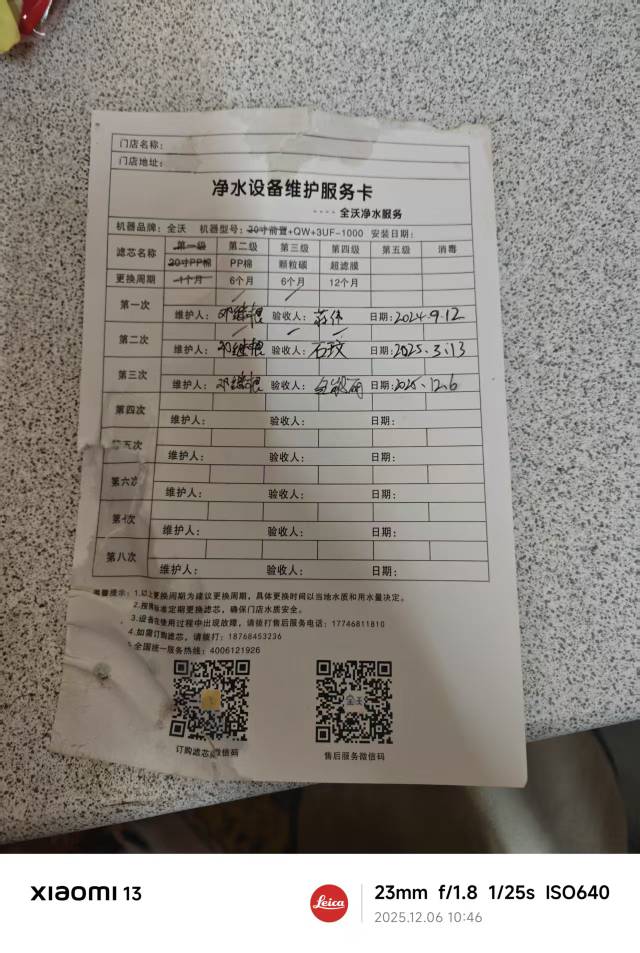 门店名称:
门店地址:
净水设备维护服务卡
---- 全沃净水服务
机器品牌: 全沃 机器型号: 20寸前置+QW+3UF-1000 安装日期:
滤芯名称 第一级 第二级 第三级 第四级 第五级 消毒
20寸PP棉 PP棉 颗粒碳 超滤膜
更换周期 1个月 6个月 6个月 12个月
第一次
维护人: 邓继棍 验收人: 日期: 2024.9.12
第二次
维护人: 邓继棍 验收人: 石玟 日期: 2025.3.13
第三次
维护人: 邓继棍 验收人: 日期: 2025.12.6
第四次
维护人: 验收人: 日期:
第五次
维护人: 验收人: 日期:
第六次
维护人: 验收人: 日期:
第七次
维护人: 验收人: 日期:
第八次
维护人: 验收人: 日期:
温馨提示: 1.以上更换周期为建议更换周期，具体更换时间以当地水质和用水量决定。
2.按照标准定期更换滤芯，确保门店水质安全。
3.设备在使用过程中出现故障，请拨打售后服务电话: 17746811810
4.如需订购滤芯，请拨打: 18768453236
全国统一服务热线: 4006121926
全沃
订购滤芯微信码 售后服务微信码
XIAOMI 13
Leica
23mm f/1.8 1/25s ISO640
2025.12.06 10:46